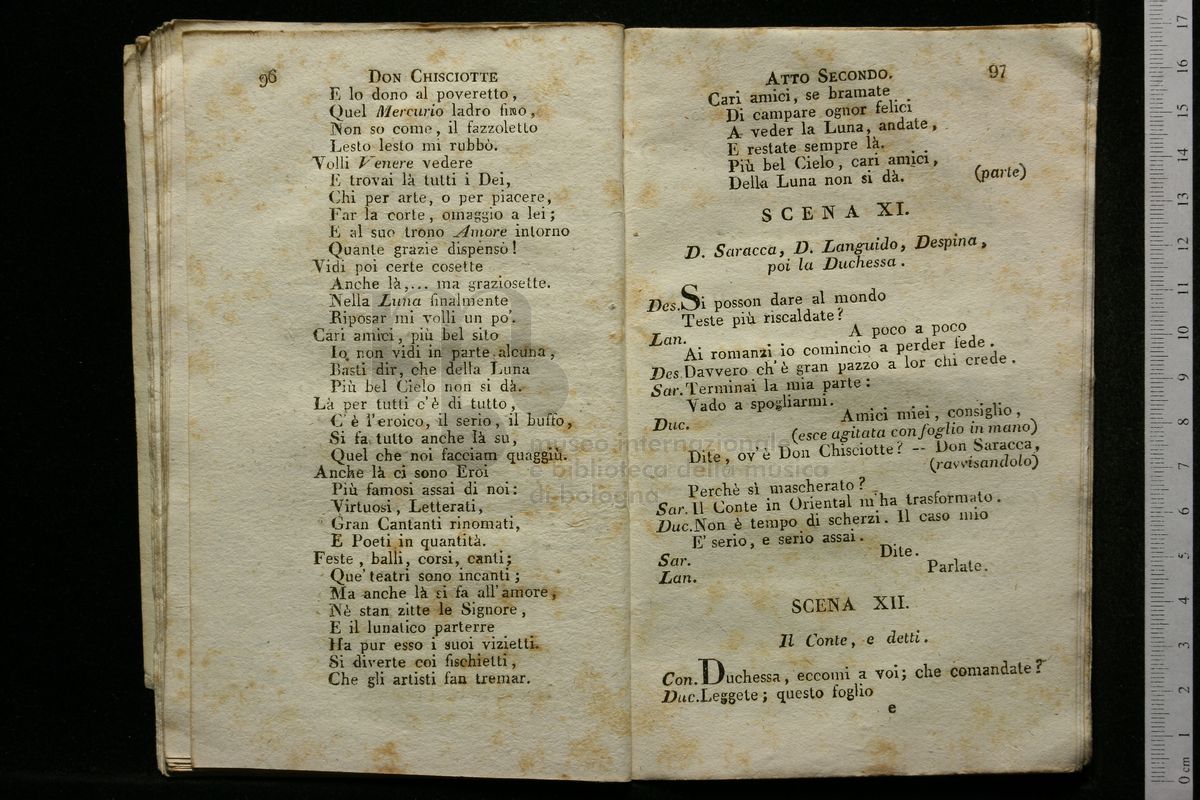 96
DON CHISCIOTTE
E lo dono al poveretto,
Quel Mercurio ladro fino,
Non so come, il fazzoletto
Lesto lesto mi rubbò.
Volli Venere vedere
E trovai là tutti i Dei,
Chi per arte, o per piacere,
Far la corte, omaggio a lei;
E al suo trono Amore intorno
Quante grazie dispensò!
Vidi poi certe cosette
Anche là,... ma graziosette.
Nella Luna finalmente
Riposar mi volli un po'.
Cari amici, più bel sito
Io non vidi in parte alcuna,
Basti dir, che della Luna
Più bel Cielo non si dà.
Là per tutti c'è di tutto,
C'è l'eroico, il serio, il buffo,
Si fa tutto anche là su,
Quel che noi facciam quaggiù.
Anche là ci sono Eroi
Più famosi assai di noi:
Virtuosi, Letterati,
Gran Cantanti rinomati,
E Poeti in quantità.
Feste, balli, corsi, canti;
Que' teatri sono incanti;
Ma anche là si fa all'amore,
Nè stan zitte le Signore,
E il lunatico parterre
Ha pur esso i suoi vizietti.
Si diverte coi fischietti,
Che gli artisti fan tremar.
ATTO SECONDO. 97
Cari amici, se bramate
Di campare ognor felici
A veder la Luna, andate,
E restate sempre là.
Più bel Cielo, cari amici,
Della Luna non si dà. (parte)
SCENA XI.
D. Saracca, D. Languido, Despina,
poi la Duchessa.
Des. Si posson dare al mondo
Teste più riscaldate?
Lan. A poco a poco
Ai romanzi io comincio a perder fede.
Des. Davvero ch'è gran pazzo a lor chi crede.
Sar. Terminai la mia parte:
Vado a spogliarmi.
Duc. Amici miei, consiglio,
(esce agitata con foglio in mano)
Dite, ov'è Don Chisciotte? -- Don Saracca,
(ravvisandolo)
Perchè sì mascherato?
Sar. Il Conte in Oriental m'ha trasformato.
Duc. Non è tempo di scherzi. Il caso mio
E' serio, e serio assai.
Sar. Dite.
Lan. Parlate.
SCENA XII.
Il Conte, e detti.
Con. Duchessa, eccomi a voi; che comandate?
Duc. Leggete; questo foglio
e
museo internazionale
e biblioteca della musica
di bologna
0 cm 1 2 3 4 5 6 7 8 9 10 11 12 13 14 15 16 17